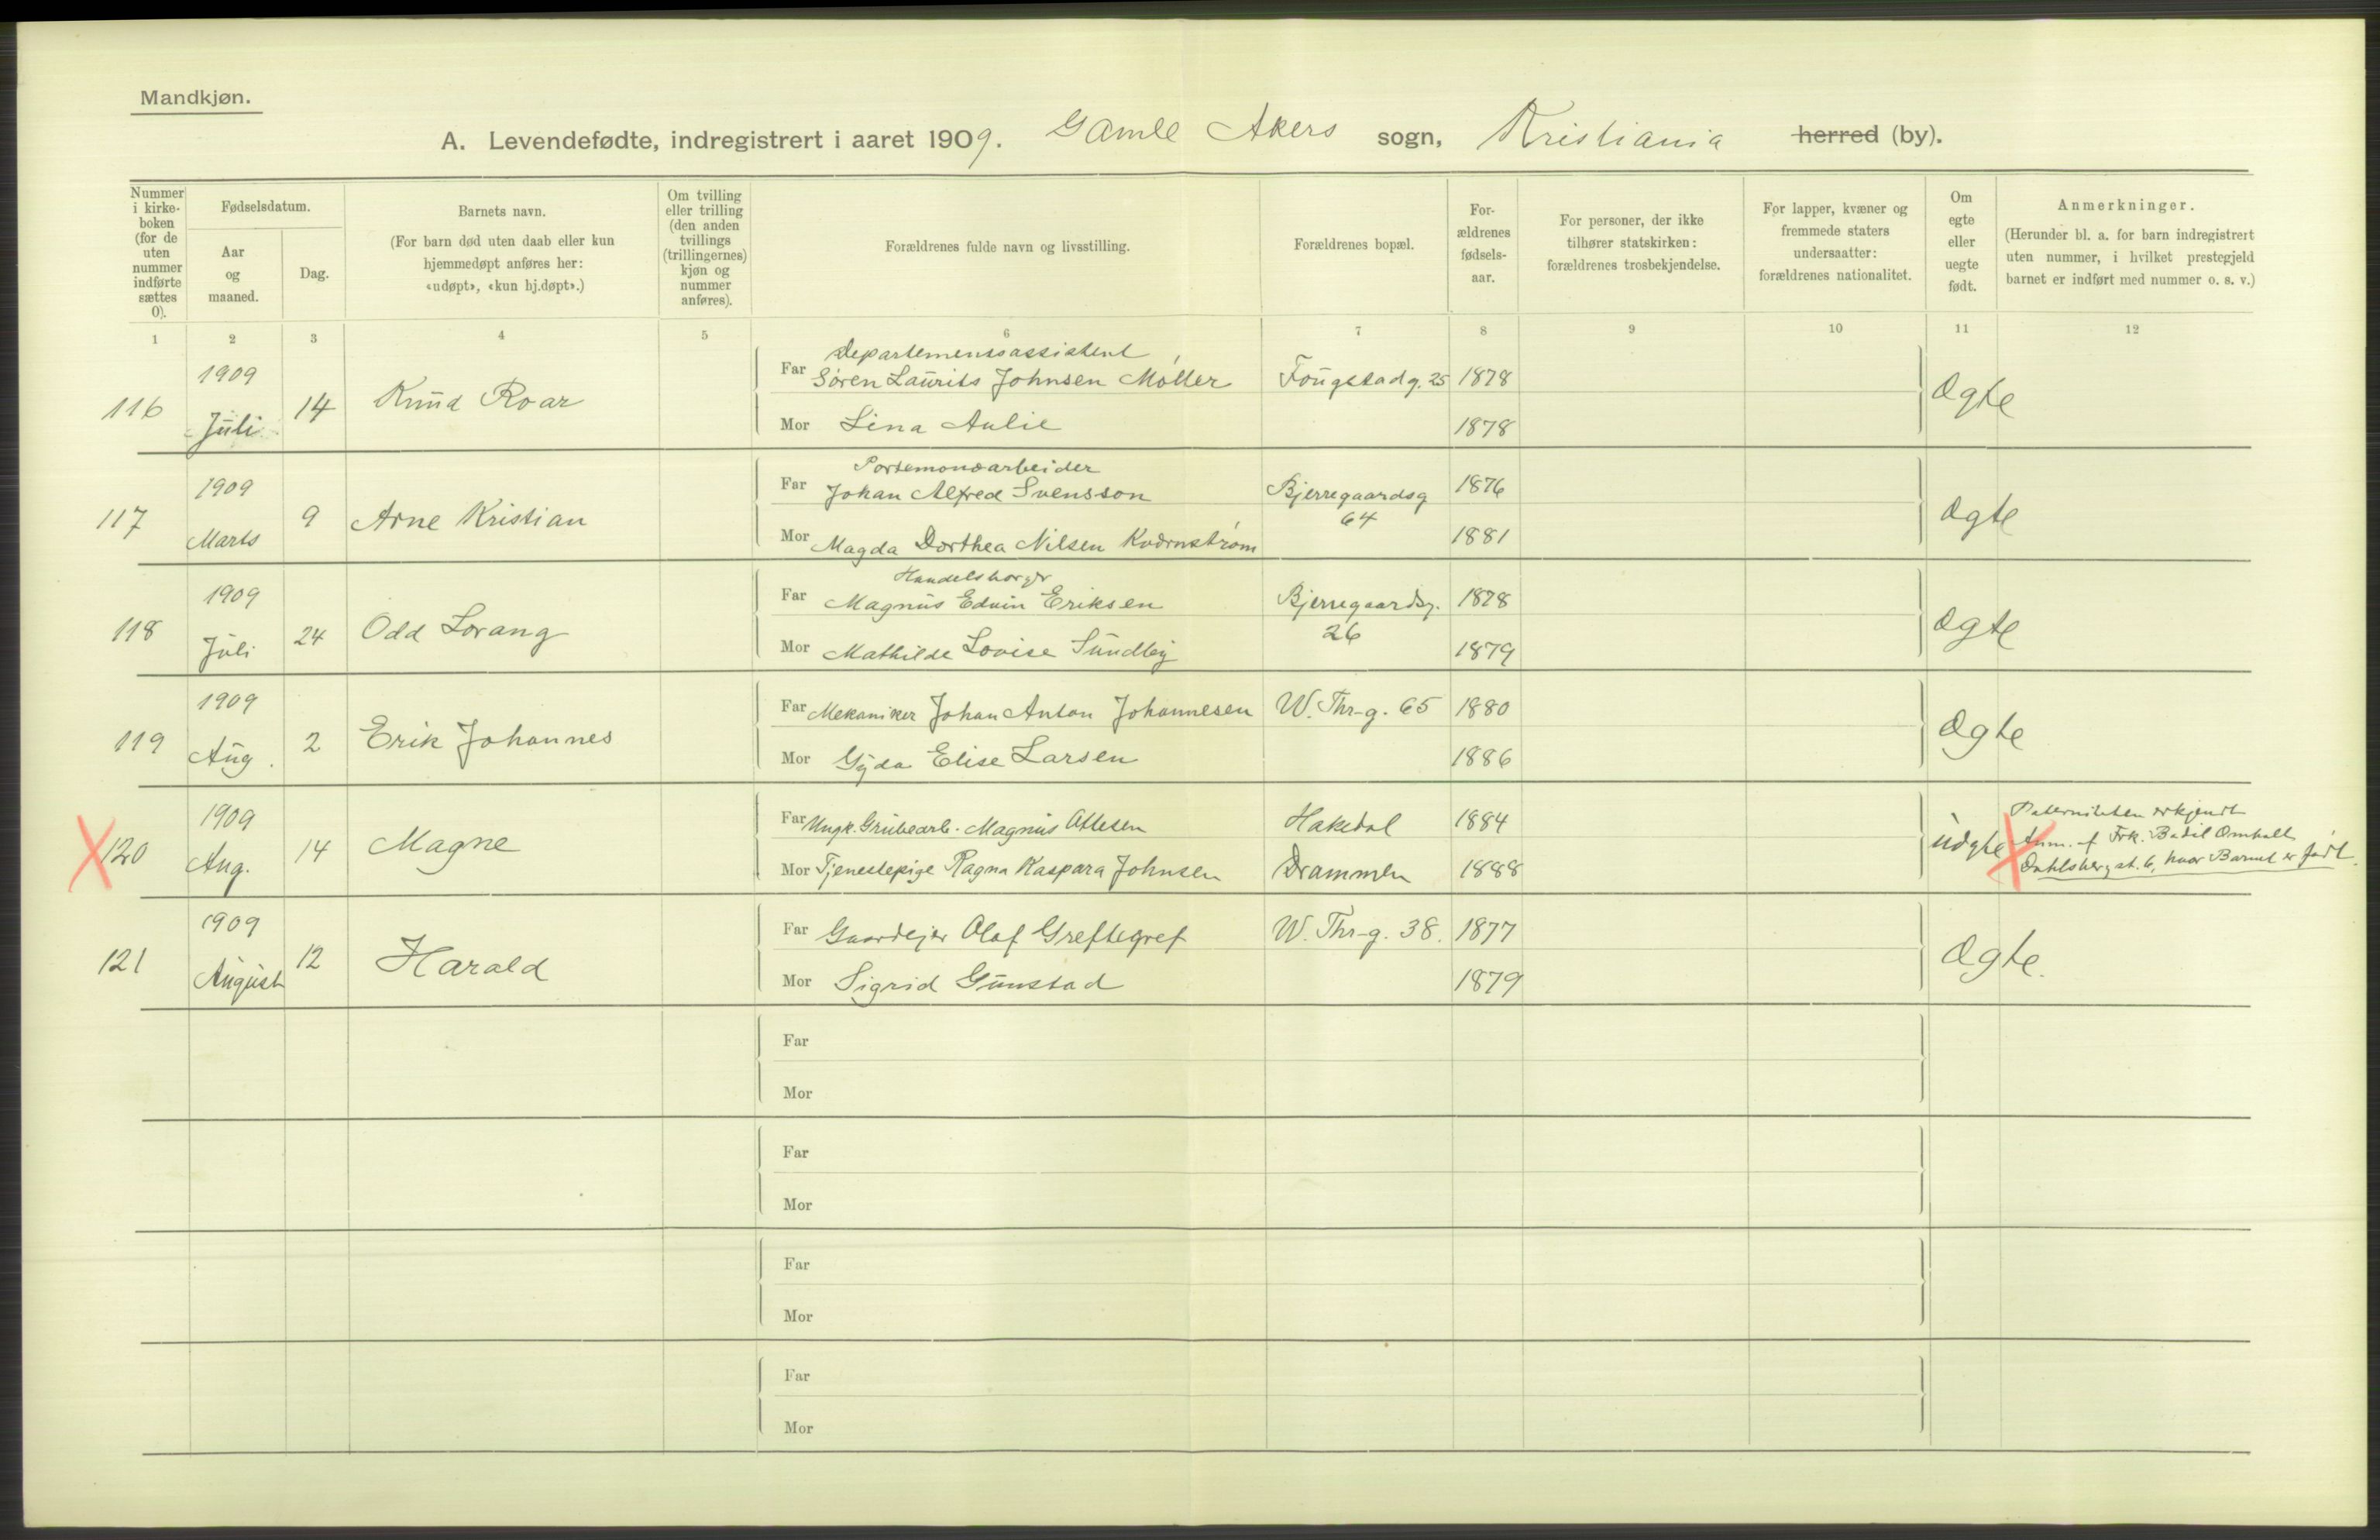 Mandkjøn.
A. Levendefødte, indregistrert i aaret 1909. Gamle Akers sogn, Kristiania herred (by).
Nummer i kirkeboken (for de uten nummer indførte sættes 0).
Fødselsdatum.
Aar og maaned.
Dag.
Barnets navn.
(For barn død uten daab eller kun hjemmedøpt anføres her: «udøpt», «kun hj.døpt».)
Om tvilling eller trilling (den anden tvillings (trillingernes) kjøn og nummer anføres).
Forældrenes fulde navn og livsstilling.
Forældrenes bopæl.
Forældrenes fødselsaar.
For personer, der ikke tilhører statskirken: forældrenes trosbekjendelse.
For lapper, kvæner og fremmede staters undersaatter: forældrenes nationalitet.
Om egte eller uegte født.
Anmerkninger.
(Herunder bl. a. for barn indregistrert uten nummer, i hvilket prestegjeld barnet er indført med nummer o. s. v.)
1 2 3 4 5 6 7 8 9 10 11 12
116 1909 Juli 14 Knud Roar
Departementsassistent
Far Søren Laurits Johnsen Møller Fougstadg. 25 1878
Mor Lina Aulie 1878
Ægte
117 1909 Marts 9 Arne Kristian
Portemonæarbeider
Far Johan Alfred Svensson Bjerregaardsg 64 1876
Mor Magda Dorthea Nilsen Kværnstrøm 1881
Ægte
118 1909 Juli 24 Odd Lorang
Handelsborger
Far Magnus Edvin Eriksen Bjerregaardsg. 26 1878
Mor Mathilde Lovise Sundby 1879
Ægte
119 1909 Aug. 2 Erik Johannes
Far Mekaniker Johan Anton Johannesen W. Thr-g. 65 1880
Mor Gyda Elise Larsen 1886
Ægte
120 1909 Aug. 14 Magne
Far Ungk. Grubearb. Magnus Ottesen Hakedal 1884
Mor Tjenestepige Ragna Kaspara Johnsen Drammen 1888
Uægte
Paterniteten erkjendt
Anm. af Frk. Bodil Omholt
Dahlsbergst. 6, hvor Barnet er født.
121 1909 August 12 Harald
Far Gaardejer Olaf Greftegref W. Thr-g. 38. 1877
Mor Sigrid Gunstad 1879
Ægte.
Far
Mor
Far
Mor
Far
Mor
Far
Mor